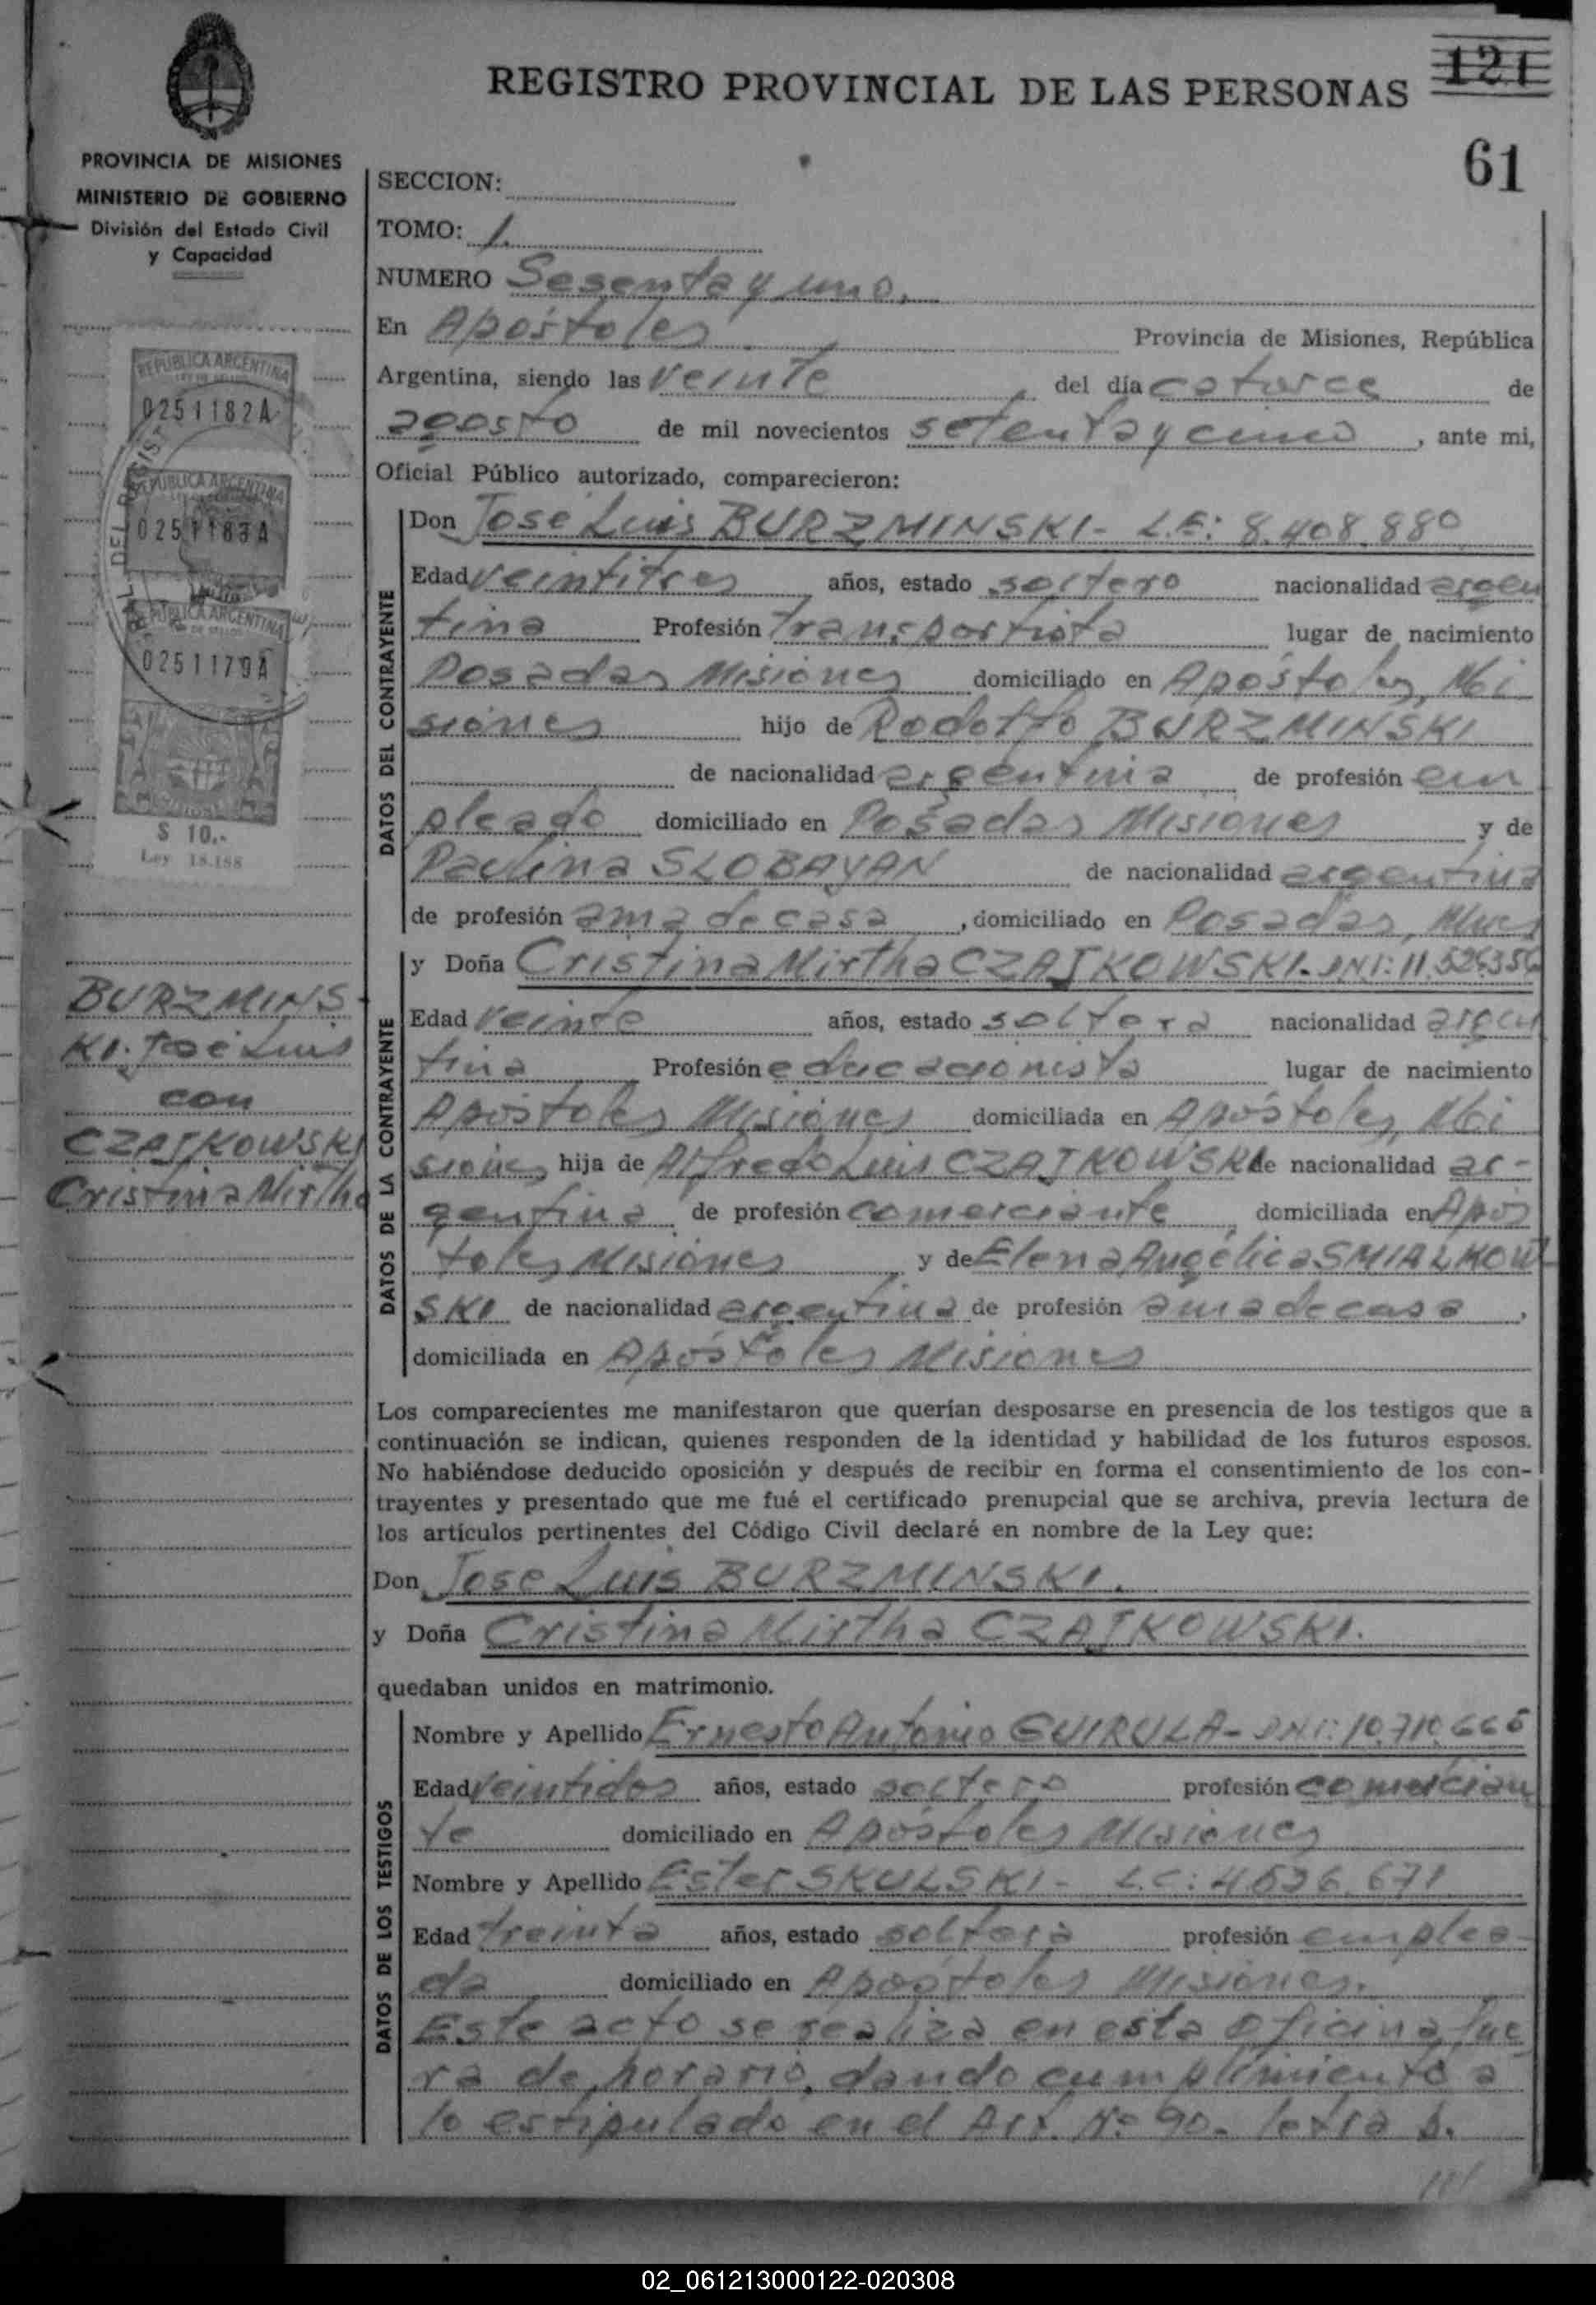 121
REGISTRO PROVINCIAL DE LAS PERSONAS
61
PROVINCIA DE MISIONES
MINISTERIO DE GOBIERNO
División del Estado Civil
y Capacidad
REPUBLICA ARGENTINA
0251182A
REPUBLICA ARGENTINA
0251183A
REPUBLICA ARGENTINA
0251179A
$ 10.-
Ley 18.188
BURZMINS
KI. José Luis
con
CZAJKOWSKI
Cristina Mirtha
SECCION:
TOMO: 1.
NUMERO Sesenta y uno.
En Apóstoles Provincia de Misiones, República
Argentina, siendo las veinte del día catorce de
agosto de mil novecientos setenta y cinco, ante mi,
Oficial Público autorizado, comparecieron:
DATOS DEL CONTRAYENTE
Don José Luis BURZMINSKI - L.E: 8.408.880
Edad veintitres años, estado soltero nacionalidad argen
tina Profesión Transportista lugar de nacimiento
Posadas Misiones domiciliado en Apóstoles, Mi
siones hijo de Rodolfo BURZMINSKI
de nacionalidad argentina de profesión em
pleado domiciliado en Posadas Misiones y de
Paulina SLOBAYAN de nacionalidad argentina
de profesión ama de casa, domiciliado en Posadas, Mnes
DATOS DE LA CONTRAYENTE
y Doña Cristina Mirtha CZAJKOWSKI - DNI: 11.526.356
Edad veinte años, estado soltera nacionalidad argen
tina Profesión educacionista lugar de nacimiento
Apóstoles Misiones domiciliada en Apóstoles, Mi
siones hija de Alfredo Luis CZAJKOWSKI de nacionalidad ar-
gentina de profesión comerciante domiciliada en Após
toles Misiones y de Elena Angélica SMIALKOW
SKI de nacionalidad argentina de profesión ama de casa,
domiciliada en Apóstoles Misiones
Los comparecientes me manifestaron que querían desposarse en presencia de los testigos que a
continuación se indican, quienes responden de la identidad y habilidad de los futuros esposos.
No habiéndose deducido oposición y después de recibir en forma el consentimiento de los con-
trayentes y presentado que me fué el certificado prenupcial que se archiva, previa lectura de
los artículos pertinentes del Código Civil declaré en nombre de la Ley que:
Don José Luis BURZMINSKI.
y Doña Cristina Mirtha CZAJKOWSKI.
quedaban unidos en matrimonio.
DATOS DE LOS TESTIGOS
Nombre y Apellido Ernesto Antonio GUIRULA - DNI: 10.710.665
Edad veintidos años, estado soltero profesión comercian
te domiciliado en Apóstoles Misiones
Nombre y Apellido Ester SKULSKI - L.C: 4.626.671
Edad treinta años, estado soltera profesión emplea-
da domiciliado en Apóstoles Misiones.
Este acto se realiza en esta oficina fue
ra de horario, dando cumplimiento a
lo estipulado en el Art. Nº 90. letra b.
02_061213000122-020308